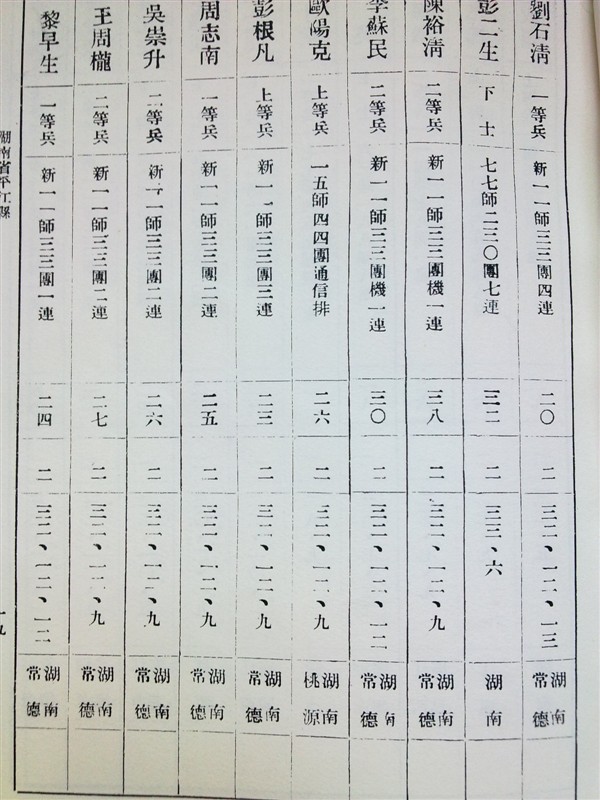 劉石淸 一等兵 新一一師三三團四連 二〇 二 三二、一二、一三 湖南常德
彭二生 下士 七七師二三〇團七連 三二 二 三三、六 湖南
陳裕淸 二等兵 新一一師三三團機一連 三八 二 三二、一二、九 湖南常德
李蘇民 二等兵 新一一師三三團機一連 三〇 二 三二、一二、一二 湖南常德
歐陽克 上等兵 一五師四四團通信排 二六 二 三二、一二、九 湖南桃源
彭根凡 上等兵 新一一師三三團三連 二三 二 三二、一二、九 湖南常德
周志南 一等兵 新一一師三三團二連 二五 二 三二、一二、九 湖南常德
吳崇升 二等兵 新一一師三三團二連 二六 二 三二、一二、九 湖南常德
王周櫳 二等兵 新一一師三三團二連 二七 二 三二、一二、九 湖南常德
黎早生 一等兵 新一一師三三團一連 二四 二 三二、一二、一二 湖南常德
湖南省平江縣
一九